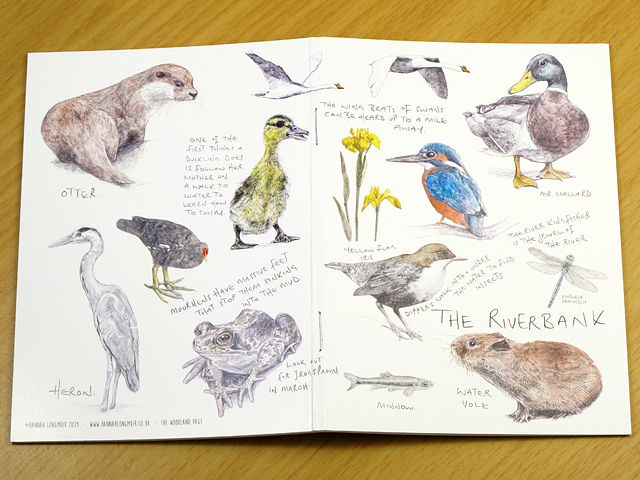 OTTER.
ONE OF THE
FIRST THINGS A
DUCKLING DOES
IS FOLLOW HER
MOTHER ON
A WALK TO
WATER TO
LEARN HOW
TO SWIM
MOORHENS HAVE MASSIVE FEET
THAT STOP THEM SINKING
INTO THE MUD.
HERON.
LOOK OUT
FOR FROGSPAWN
IN MARCH.
©HANNAH LONGMUIR 2019 - WWW.HANNAHLONGMUIR.CO.UK - THE WOODLAND PAGE
THE WING BEATS OF SWANS
CAN BE HEARD UP TO A MILE
AWAY.
MR. MALLARD
YELLOW FLAG
IRIS
THE RIVER KINGFISHER
IS THE JEWEL OF
THE RIVER
DIPPERS WALK INTO & UNDER
THE WATER TO FIND
INSECTS
EMPEROR
DRAGONFLY
THE RIVERBANK
MINNOW
WATER
VOLE